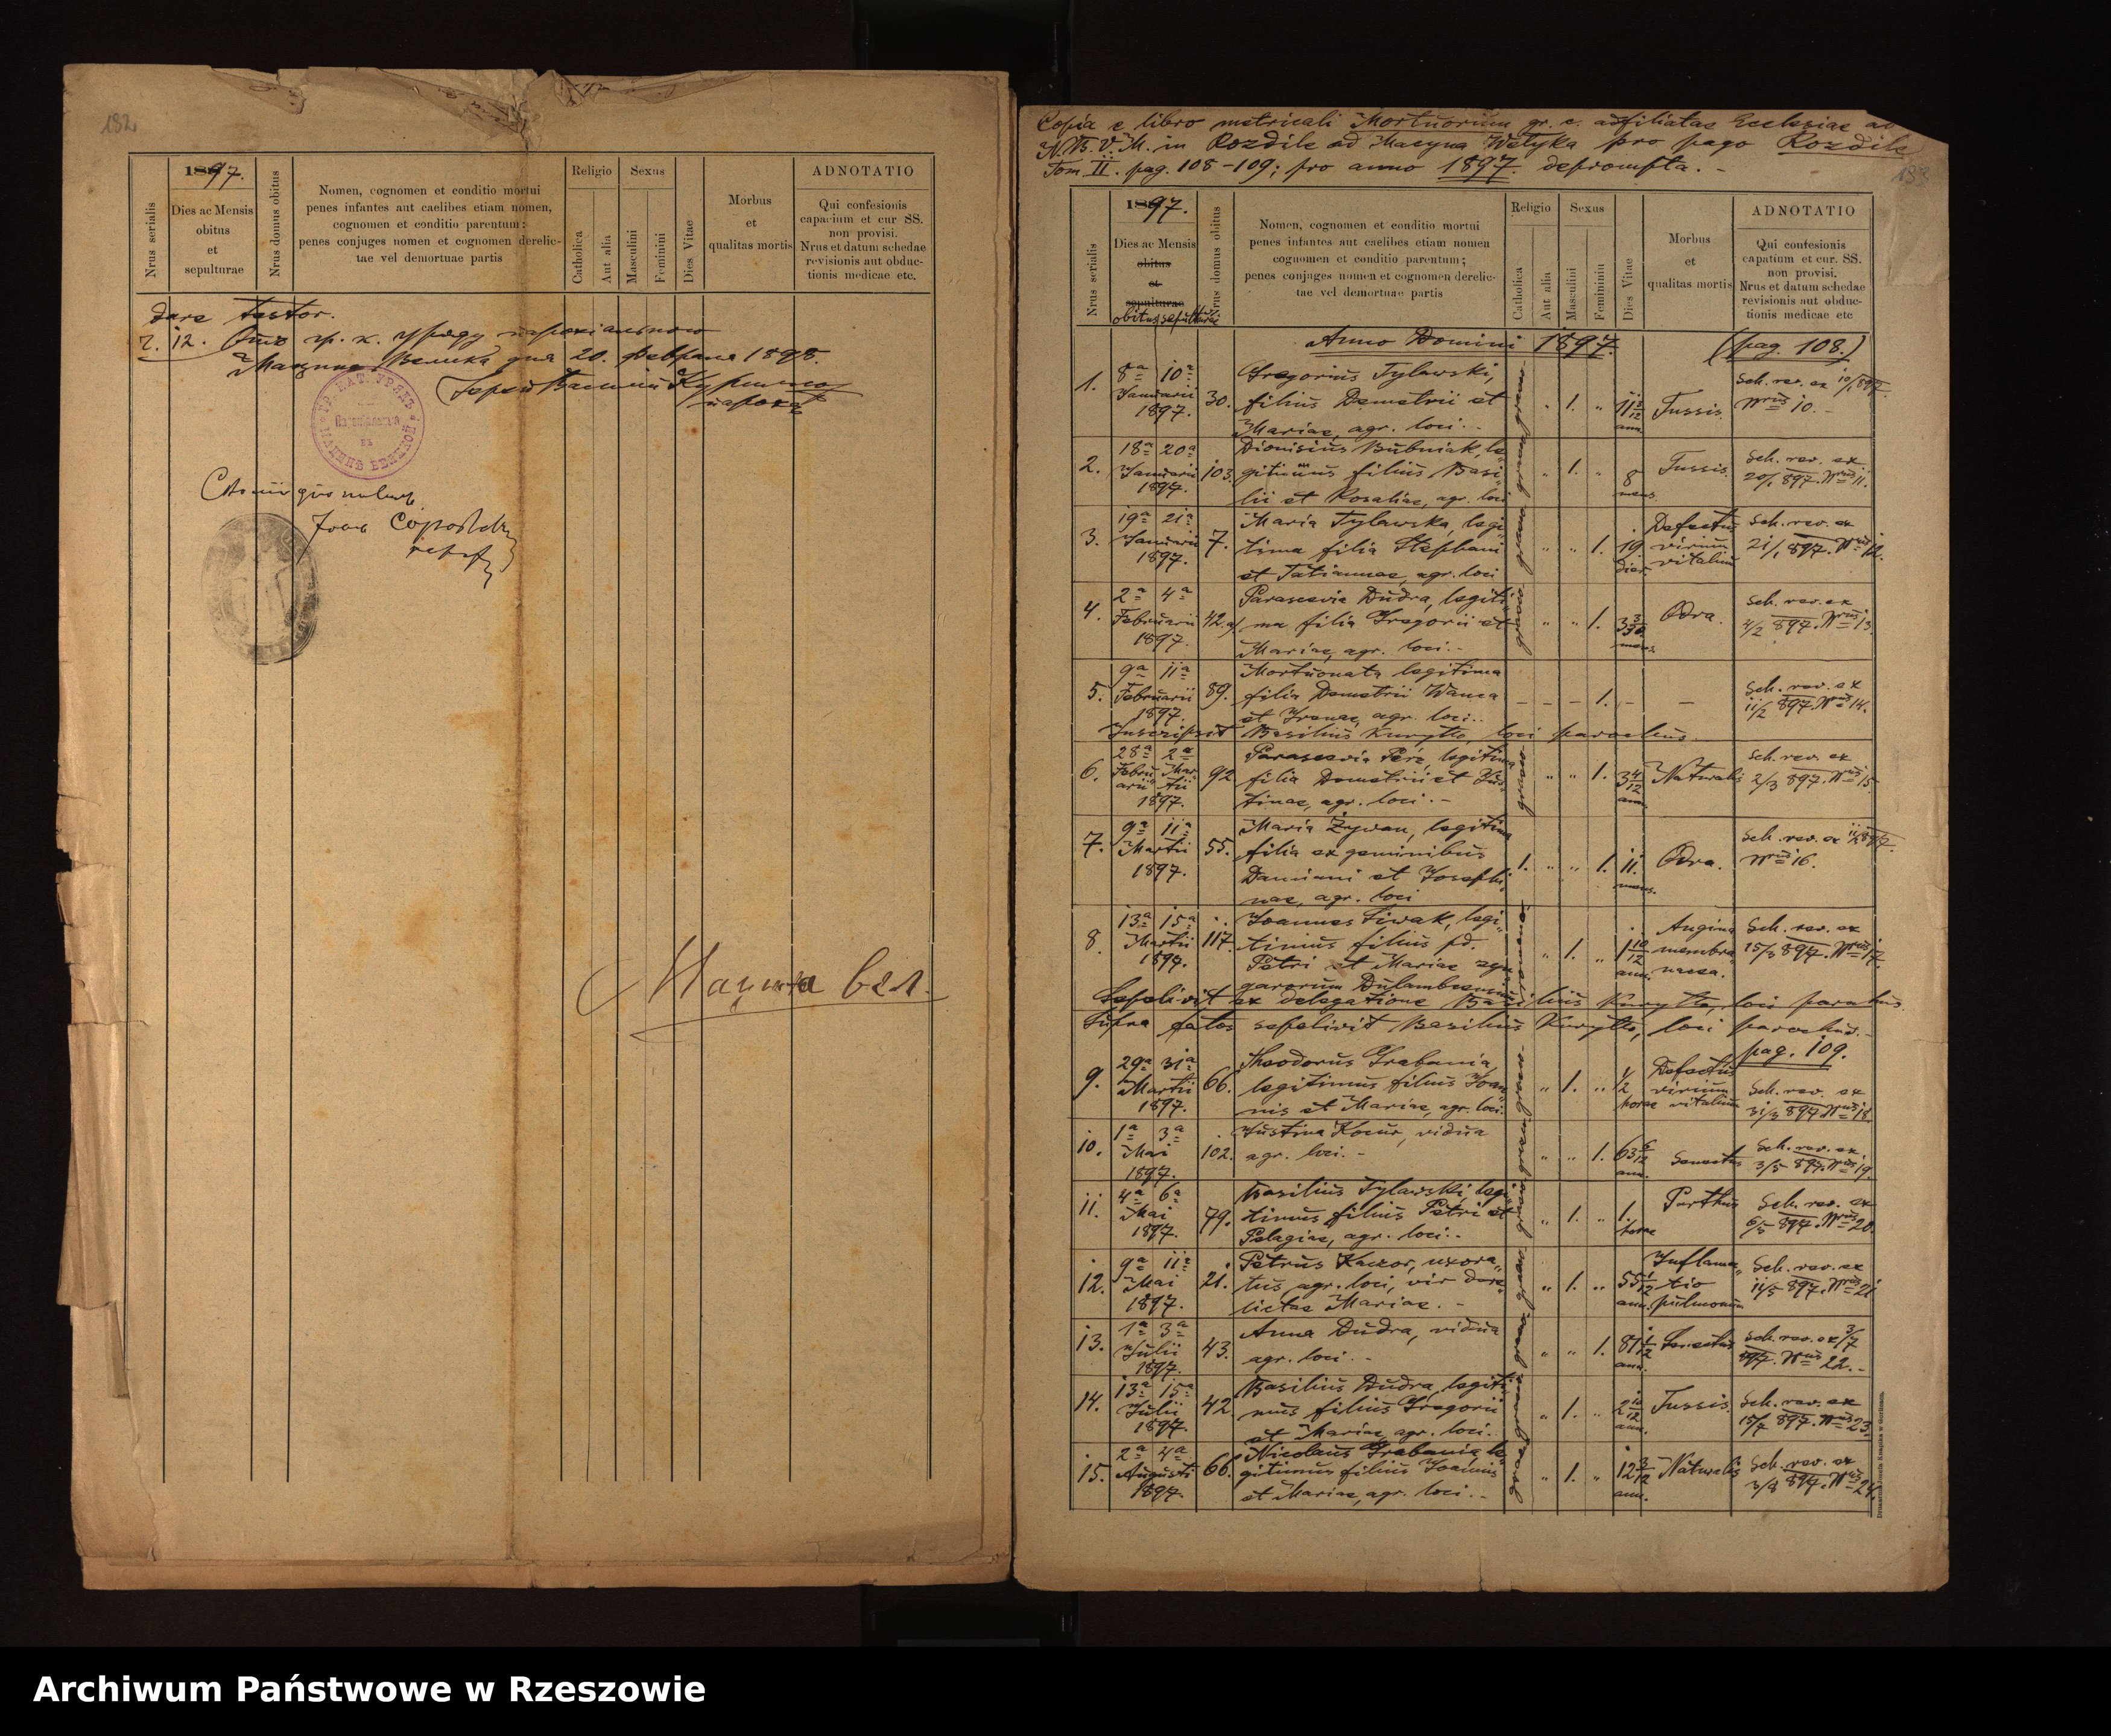 132
1897.
Nrus serialis
Dies ac Mensis
obitus
et
sepulturae
Nrus domus obitus
Nomen, cognomen et conditio mortui
penes infantes aut caelibes etiam nomen,
cognomen et conditio parentum:
penes conjuges nomen et cognomen derelic-
tae vel demortuae partis
Religio
Catholica
Aut alia
Sexus
Masculini
Feminini
Dies Vitae
Morbus
et
qualitas mortis
ADNOTATIO
Qui confesionis
capacium et cur SS.
non provisi.
Nrus et datum schedae
revisionis aut obduc-
tionis medicae etc.
dare testor.
Ч. 12. Отъ гр. к. уряду парохіяльного
Мацина Велика дня 20. Фебраля 1898.
Іерей Василий Курилло
парохъ
Мацина вел.
Copia e libro metricali Mortuorum gr. c. adfiliatae Ecclesiae
N. B. V. M. in Rozdile ad Macyna Welyka pro pago Rozdile
Tom II. pag. 108-109; pro anno 1897. deprompta. -
1897.
Nrus serialis
Dies ac Mensis
obitus
et
sepulturae
obitus sepulturae
Nrus domus obitus
Nomen, cognomen et conditio mortui
penes infantes aut caelibes etiam nomen
cognomen et conditio parentum;
penes conjuges nomen et cognomen derelic-
tae vel demortuae partis
Religio
Catholica
Aut alia
Sexus
Masculini
Femininiu
Dies Vitae
Morbus
et
qualitas mortis
ADNOTATIO
Qui confesionis
capatium et cur. SS.
non provisi.
Nrus et datum schedae
revisionis aut obduc-
tionis medicae etc
Anno Domini 1897. (pag. 108.)
1. 8a 10a Januarii 1897. 30. Gregorius Tylawski,
filius Demetrii et
Mariae, agr. loci.- " 1. " 11 3/12 ann. Tussis. Sch. rev. ex 10/1 897. Nrus 10.-
2. 18a 20a Januarii 1897. 103. Dionisius Bubniak, le-
gitimus filius Basi-
lii et Rosaliae, agr. loci " 1. " 8 mens. Tussis. Sch. rev. ex 20/1 897. Nrus 11.
3. 19a 21a Januarii 1897. 7. Maria Tylawska, legi-
tima filia Stephani
et Tatiannae, agr. loci " " 1. 19. dier. Defectus virium vitalium Sch. rev. ex 21/1 897. Nrus 12.
4. 2a 4a Februarii 1897. 42.a) Parascevia Dudra, legiti-
ma filia Gregorii et
Mariae, agr. loci.- " " 1. 3 3/30 mens. Odra. Sch. rev. ex 4/2 897. Nrus 13.
5. 9a 11a Februarii 1897. 89. Mortuonata legitima
filia Demetrii Wanca
et Irenae, agr. loci.. - - - 1. - - Sch. rev. ex 11/2 897. Nrus 14.
Inscripsit Basilius Kuryłło, loci parochus.
6. 28a 2a Februarii Martii 1897. 92. Parascevia Perć, legitima
filia Demetrii et Jus-
tinae, agr. loci.- " " 1. 3 4/12 ann. Naturalis Sch. rev. ex 2/3 897. Nrus 15.
7. 9a 11a Martii 1897. 55. Maria Żywan, legitima
filia ex geminibus
Damiani et Josephi-
nae, agr. loci 1. " " 1. 11. mens. Odra. Sch. rev. ex 11/3 897. Nrus 16.
8. 13a 15a Martii 1897. 117. Joannes Siwak, legi-
timus filius pd.
Petri et Mariae zyn-
garorum " 1. " 1 10/12 ann. Angina membranacea. Sch. rev. ex 15/3 897. Nrus 17.
Sepelivit ex delegatione Basilius Kuryłło, loci parochus.
Supra fatos sepelivit Basilius Kuryłło, loci parochus.-
pag. 109.
9. 29a 31a Martii 1897. 66. Theodorus Grabania,
legitimus filius Joan-
nis et Mariae, agr. loci. " 1. " 1/2 horae Defectus virium vitalium Sch. rev. ex 31/3 897. Nrus 18.
10. 1a 3a Mai 1897. 102. Justina Kocur, vidua
agr. loci.- " " 1. 63 6/12 ann. Senectus Sch. rev. ex. 3/5 897. Nrus 19.
11. 4a 6a Mai 1897. 79. Basilius Tylawski, legi-
timus filius Petri et
Pelagiae, agr. loci.. " 1. " 1. horae Parthus Sch. rev. ex 6/5 897. Nrus 20.
12. 9a 11a Mai 1897. 21. Petrus Kaczor, uxora-
tus, agr. loci, vir dere-
lictae Mariae.- " 1. " 55 1/12 ann. Inflama-
tio
pulmonum Sch. rev. ex 11/5 897. Nrus 21
13. 1a 3a Julii 1897. 43. Anna Dudra, vidua
agr. loci.- " " 1. 81 1/12 ann. Senectus Sch. rev. ex 3/7 897. Nrus 22.-
14. 13a 15a Julii 1897. 42. Basilius Dudra, legiti-
mus filius Gregorii
et Mariae, agr. loci. " 1. " 2 10/12 ann. Tussis. Sch. rev. ex 15/7 897. Nrus 23.
15. 2a 4a Augusti 1897. 66. Nicolaus Grabania, le-
gitimus filius Joannis
et Mariae, agr. loci.- " 1. " 12 3/12 ann. Naturalis Sch. rev. ex 3/8 897. Nrus 24.
Archiwum Państwowe w Rzeszowie